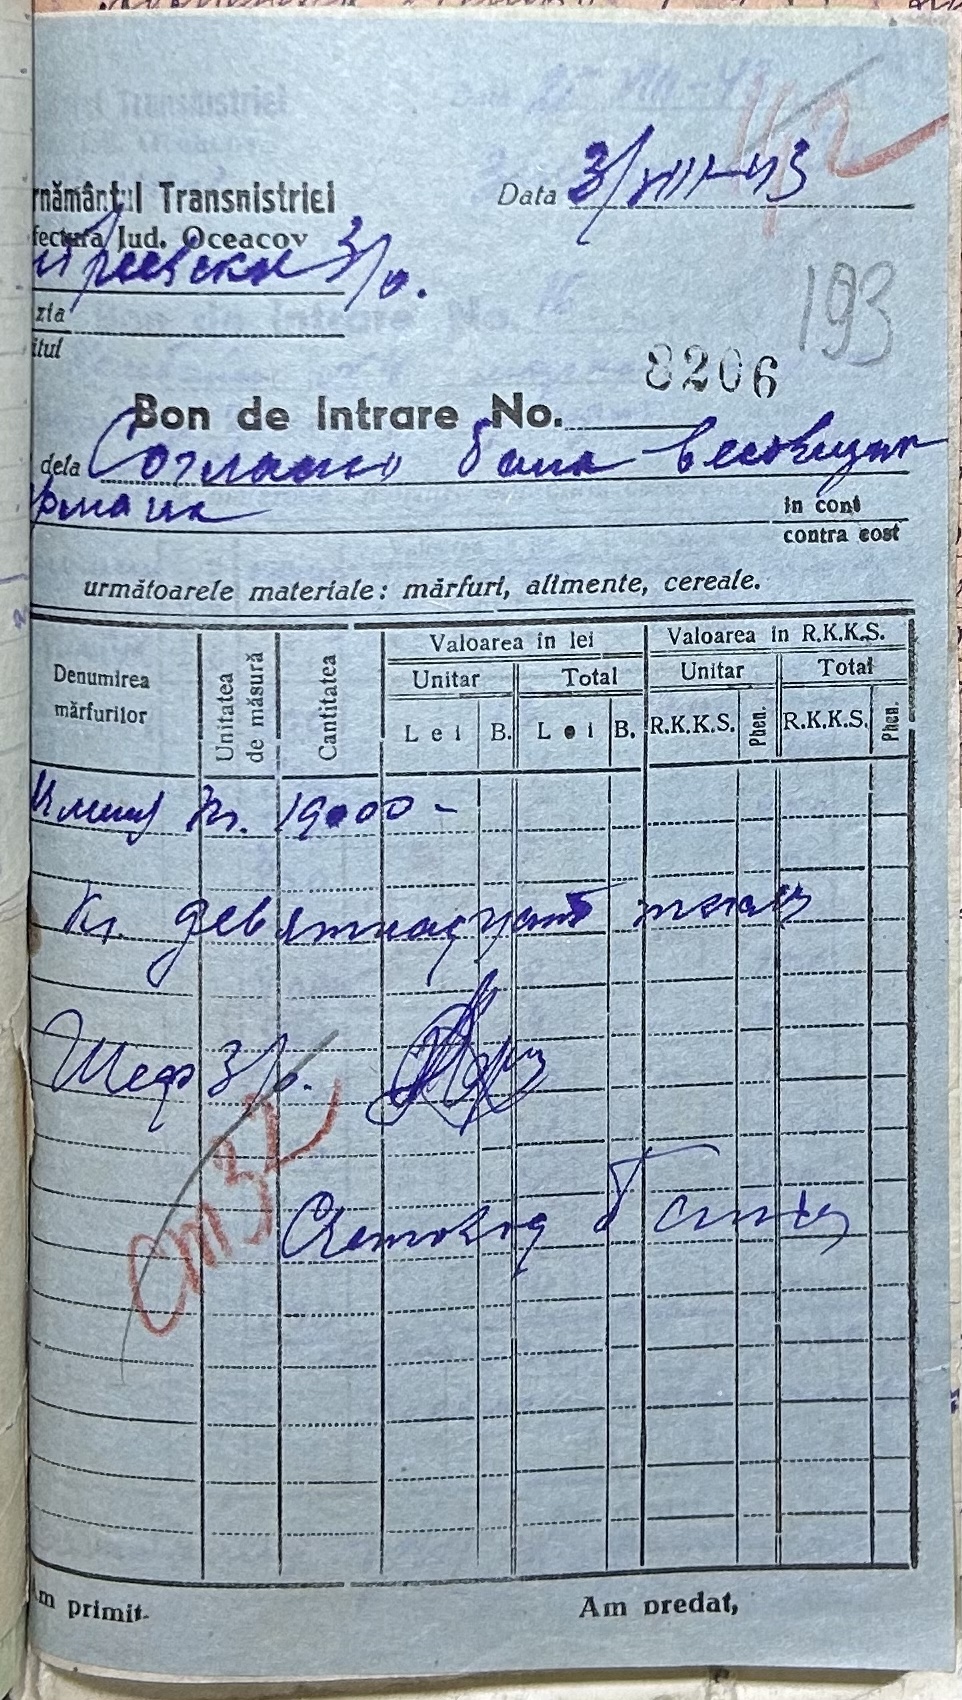 Data 3/VIII-43
rnământul Transnistriei
fectura Jud. Oceacov
З/о.
zia
itul
193
8206
Bon de Intrare No.
dela Согласно бона весовщик
in cont
contra cost
următoarele materiale: mărfuri, alimente, cereale.
Denumirea mărfurilor
Unitatea de măsură
Cantitatea
Valoarea în lei
Valoarea în R.K.K.S.
Unitar Total Unitar Total
Lei B. Lei B. R.K.K.S. Phen. R.K.K.S. Phen.
Ячмень кг. 19000-
кг. девятнадцать тысяч
Шеф З/о.
ст 32
Счетовод
m primit.
Am predat,